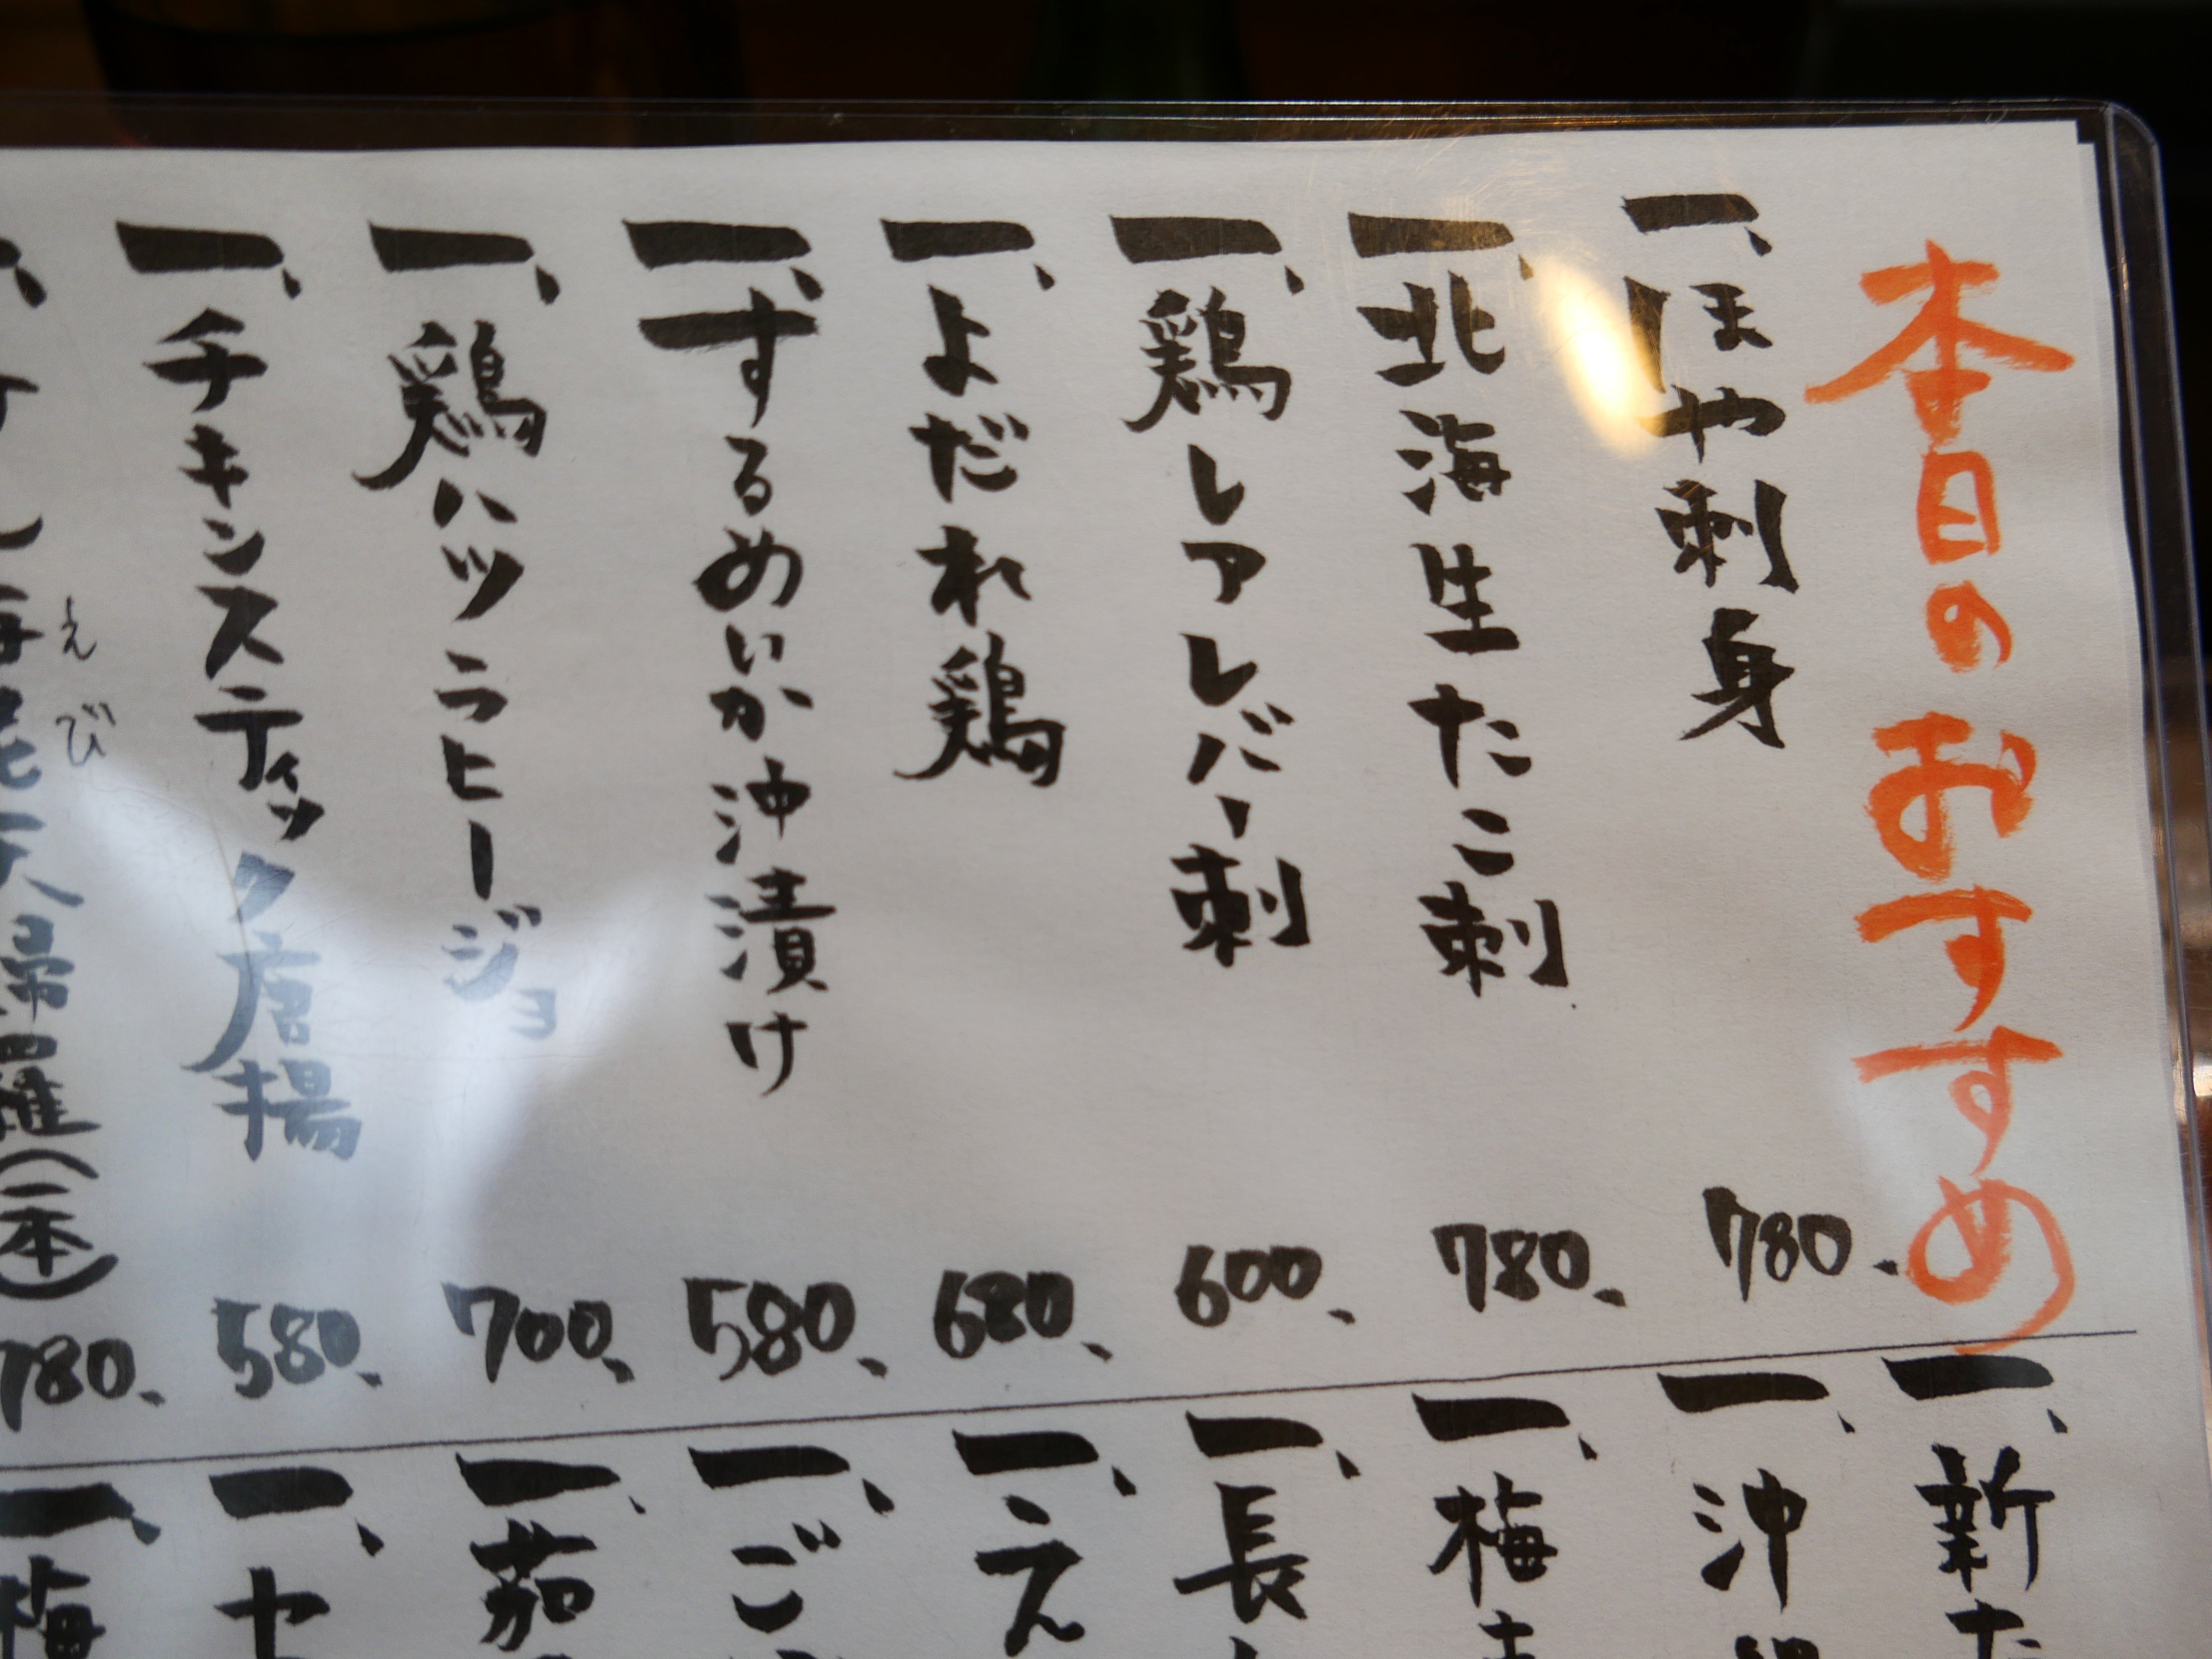 本日のおすすめ
一、ほや刺身 780、
一、北海生たこ刺 780、
一、鶏レアレバー刺 600、
一、よだれ鶏 680、
一、するめいか沖漬け 580、
一、鶏ハツラヒージョ 700、
一、チキンスティック唐揚 580、
えび
天婦羅(一本) 780、
一、新た
一、沖
一、梅
一、長
一、え
一、ご
一、茄
一、セ
一、梅